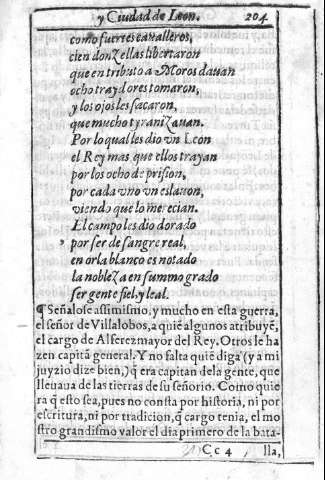 y Ciudad de Leon. 204
como fuertes cavalleros,
cien donzellas libertaron
que en tributo a Moros davan
ocho traydores tomaron,
y los ojos les sacaron,
que mucho tyranizavan.
Por lo qual les dio un Leon
el Rey mas que ellos trayan
por los ocho de prision,
por cada uno un eslavon,
viendo que lo merecian.
El campo les dio dorado
por ser de sangre real,
en orla blanco es notado
la nobleza en summo grado
ser gente fiel, y leal.
¶ Señalose assimismo, y mucho en esta guerra,
el señor de Villalobos, a quiẽ algunos atribuyẽ,
el cargo de Alferez mayor del Rey. Otros le ha
zen capitã general. Y no falta quiẽ diga (y a mi
juyzio dize bien,) q̃ era capitan dela gente, que
llevava de las tierras de su señorio. Como quie
ra q̃ esto sea, pues no consta por historia, ni por
escritura, ni por tradicion, q̃ cargo tenia, el mo
stro grandissimo valor el dia primero de la bata-
Cc 4 lla,